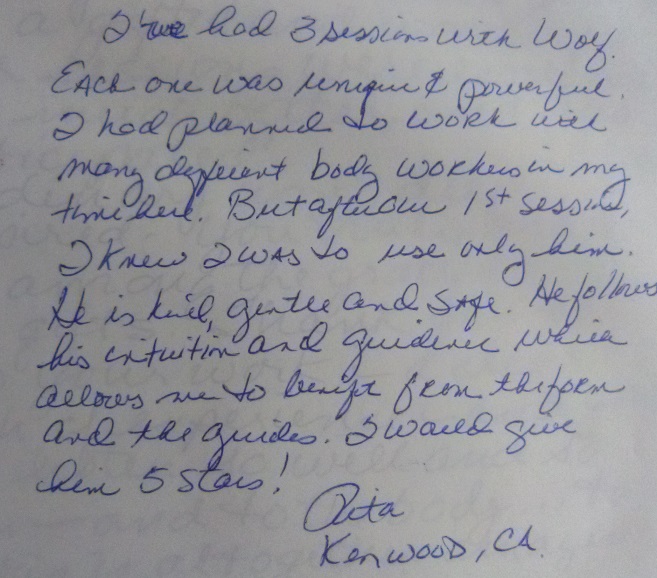 I've had 3 sessions with Wolf.
Each one was unique & powerful.
I had planned to work with
many different body workers in my
time here. But after our 1st session,
I knew I was to use only him.
He is kind, gentle and safe. He follows
his intuition and guidence which
allows me to benifit from the form
and the guides. I would give
him 5 stars!
Rita
Kenwood, CA.